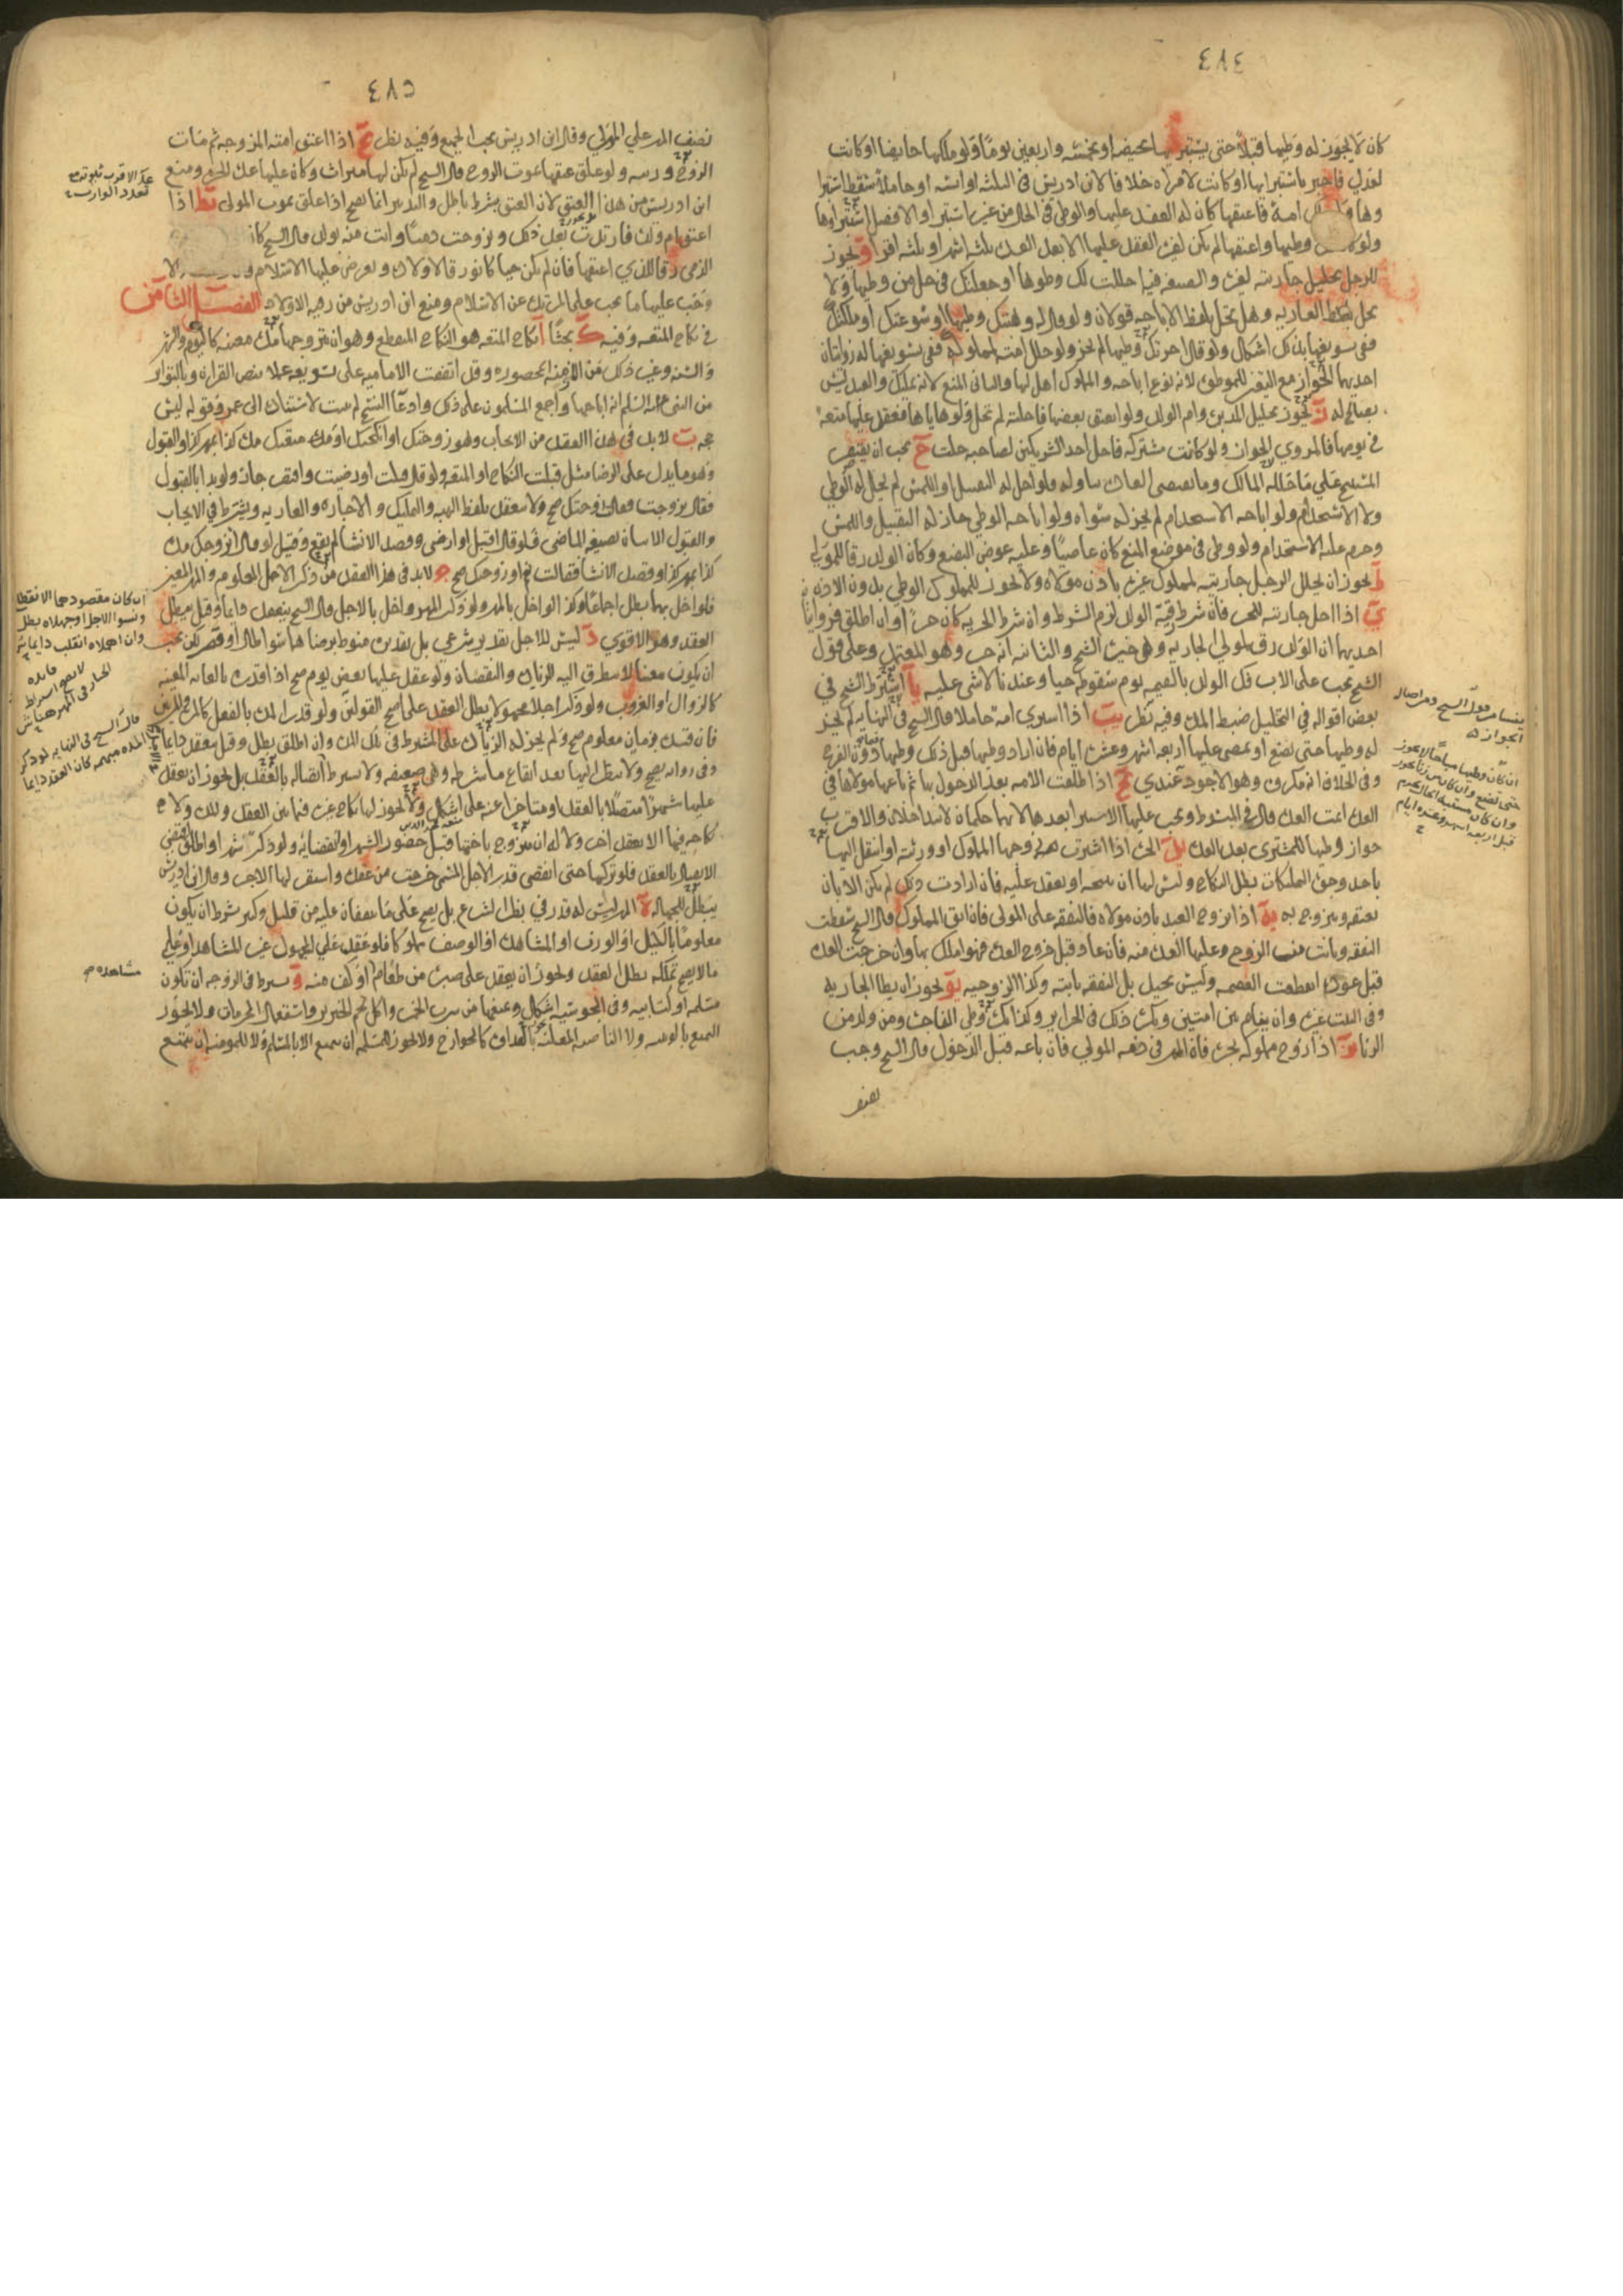 ٤٨٤
كان لا يجوز له وطيها قبلا حتى يستبريها بحيضه او بخمسه واربعين يوما ولو ملكها حايضا او كانت
لعدل فاخبر باستبرايها او كانت لامراه خلافا لابن ادريس في الثلثه او ايسه او حاملا سقط استبرا
وهاو امة فاعتقها كان له العقد عليها والوطى في الحال من غير استبرا والافضل استبراوها
ولو وطيها واعتقها لم يكن لغيره العقد عليها الا بعد العده بثلثه اشهر او بثلثه اقرا و يجوز
للرجل تحليل جاريته لغيره والصيغه فيه احللت لك وطوها او جعلتك في حل من وطيها ولا
يحل بلفظ العاريه وهل يحل بلفظ الاباحه قولان ولو قال له وهبتك وطيها او سوغتك او ملكتك
ففي تسويغها بذلك اشكال ولو قال اجرتك وطيها لم يجز ولو حلل امته لمملوكه ففى تسويغها له روايتان
احديهما الجواز مع اليقين للموطوه لانه نوع اباحه والمملوك اهل لها والثاني المنع لانه تمليك والعبد ليس
بصالح له ز يجوز تحليل المدبره وام الولد ولو انعتق بعضها فاحلته لم تحل ولو هاياها فعقد عليها متعه
في يومها فالمروي الجواز ولو كانت مشتركه فاحل احد الشريكين لصاحبه حلت ح يجب ان يقتصر
المستبيح على ما حلله المالك وما تقتضى العاده تناوله فلو احل له التقبيل او اللمس لم يحل له الوطي
ولا الاستخدام ولو اباحه الاستخدام لم يجز له سواه ولو اباحه الوطي جاز له التقبيل واللمس
وحرم عليه الاستخدام ولو وطى في موضع المنع كان عاصيا وعليه عوض البضع وكان الولد رقا للمولي
ط يجوز ان يحلل الرجل جاريته لمملوك غيره باذن مولاه ولا يجوز للمملوك الوطي بدون الاذن
ي اذا احل جاريته لحر فان شرط رقية الولد لزم الشرط وان شرط الحريه كان حرا وان اطلق فروايتان
احديهما ان الولد رق لمولي الجاريه وهي خيرة الشيخ والثانيه انه حر وهو المعتمد وعلى قول
الشيخ يجب على الاب فك الولد بالقيمه يوم سقوطه حيا وعندنا لا شى عليه يا اشترط الشيخ في
بعض اقواله في التحليل ضبط المده وفيه نظر يب اذا اشترى امة حاملا قال الشيخ في النهايه لم يجز
له وطيها حتى تضع او يمضى عليها اربعه اشهر وعشره ايام فان اراد وطيها قبل ذلك وطيها دون الفرج
وفى الخلاف انه مكروه وهو الاجود عندي يج اذا طلقت الامه بعد الدخول بها ثم باعها مولاها في
العده اتمت العده قال في المبسوط ويجب عليها الاستبرا بعدها لانهما حكمان لا يتداخلان والاقرب
جواز وطيها للمشترى بعد العده يد الحره اذا اشترت زوجها المملوك او ورثته او انتقل اليها
باحد وجوه التملكات بطل النكاح وليس لها ان تبيحه او يعقد عليه فان ارادت ذلك لم يكن الا بان
تعتقه ويتزوج به يه اذا تزوج العبد باذن مولاه فالنفقه على المولى فان ابق المملوك قال الشيخ سقطت
النفقه وبانت منه الزوجه وعليها العده منه فان عاد قبل خروج العده فهو املك بها وان خرجت العده
قبل عوده انقطعت العصمه وليس بجيد بل النفقه ثابته وكذا الزوجيه يو يجوز ان يطا الجاريه
وفى البيت غيره وان ينام بين امتين ويكره ذلك في الحراير وكذا يكره وطى الفاجره ومن ولد من
الزنا يز اذا زوج مملوكه بحره فان المهر في ذمه المولي فان باعه قبل الدخول قال الشيخ وجب
نصف
ان كان وطيها مباحا لا يجوز
حتى تضع وان كان من زنا يجوز
٤٨٥
نصف المهر علي المولي وقال ابن ادريس يجب الجميع وفيه نظر يح اذا اعتق امته المزوجه ثم مات
الزوج ورثته ولو علق عتقها بموت الزوج قال الشيخ لم يكن لها ميراث وكان عليها عدة الحره ومنع
ابن ادريس من هذا العتق لان العتق بشرط باطل والتدبير انما يصح اذا علق بموت المولى يط اذا
اعتق ام ولده فارتدت بعد ذلك وتزوجت ذميا واتت منه بولد قال الشيخ كان
الذمى رقا للذي اعتقها فان لم يكن حيا كانوا رقا لاولاده ويعرض عليها الاسلام
وجب عليها ما يجب على المرتده عن الاسلام ومنع ابن ادريس من رقيه الاولاد الفصل الثامن
في نكاح المتعه وفيه ك بحثا ا نكاح المتعه هو النكاح المنقطع وهو ان يتزوجها مده معينه كاليوم والشهر
والسنه وغير ذلك من الازمنه المحصوره وقد اتفقت الاماميه على تسويغه عملا بنص القران وبالتواتر
من النبى عليه السلم انه اباحها واجمع المسلمون على ذلك وادعا النسخ لم يثبت لاستناده الى عمر وقوله ليس
حجه ب لابد في هذا العقد من الايجاب وهو زوجتك او انكحتك او متعتك مده كذا بمهر كذا والقبول
وهو ما يدل على الرضا مثل قبلت النكاح او المتعه ولو قال قبلت او رضيت واقتصر جاز ولو بدا بالقبول
فقال تزوجت فقالت زوجتك صح ولا ينعقد بلفظ الهبه والتمليك والاجاره والعاريه ويشترط في الايجاب
والقبول الاتيان بصيغه الماضى فلو قال اقبل او ارضى وقصد الانشا لم يقع وقيل لو قال اتزوجك مده
كذا بمهر كذا وقصد الانشا فقالت نعم او زوجتك صح ج لابد في هذا العقد من ذكر الاجل المعلوم والمهر المعين
فلو اخل بهما بطل اجماعا وكذا لو اخل بالمهر ولو ذكر المهر واخل بالاجل قال الشيخ ينعقد دايما وقيل يبطل
العقد وهو الاقوي د ليس للاجل تقدير شرعي بل تقديره منوط برضاهما سوا طال او قصر لكن يجب
ان يكون معينا لا يتطرق اليه الزياده والنقصان ولو عقد عليها بعض يوم صح اذا قدره بالغايه المعينه
كالزوال او الغروب ولو ذكر اجلا مجهولا بطل العقد على اصح القولين ولو قدر المده بالفعل كالمره والمرتين
فان قيده بزمان معلوم صح ولم يجز له الزياده على المشترط في تلك المده وان اطلق بطل وقيل ينعقد دايما
وفى روايه يصح ولا ينظر اليها بعد ايقاع ما شرطه وهى ضعيفه ولا يشترط اتصاله بالعقد بل يجوز ان يعقد
عليها شهرا متصلا بالعقد او متاخرا عنه على اشكال ولا يجوز لها نكاح غيره فيما بين العقد وتلك ولا
نكاحه فيها الا بعقد اخر ولا له ان يتزوج باختها قبل حضور الشهر او انقضائه ولو ذكر شهرا واطلق اقتضى
الاتصال بالعقد فلو تركها حتى انقضى قدر الاجل المسمى خرجت من عقده واستقر لها الاجر وقال ابن ادريس
يبطل للجهاله ه المهر ليس له قدر في نظر الشرع بل يصح على ما يتفقان عليه من قليل وكثير بشرط ان يكون
معلوما بالكيل او الوزن او المشاهده او الوصف مملوكا فلو عقد علي المجهول غير المشاهد او علي
ما لا يصح تملكه بطل العقد ويجوز ان يعقد على صبره من طعام او كف منه و يشترط في الزوجه ان تكون
مسلمه او كتابيه وفى المجوسيه اشكال ويمنعها من شرب الخمر واكل لحم الخنزير واستعمال المحرمات ولا يجوز
التمتع بالوثنيه ولا الناصبه المعلنه بالعداوه كالخوارج ولا يجوز للمسلمه ان تتمتع الا بالمسلم ولا للمومنه ان تتمتع
ان كان مقصودهما الانقطا
ونسوا الاجل او جهلاه بطل
وان اهملاه انقلب دايما
قال الشيخ في النهايه لو ذكر
المده مبهمه كان العقد دايما
مشاهده